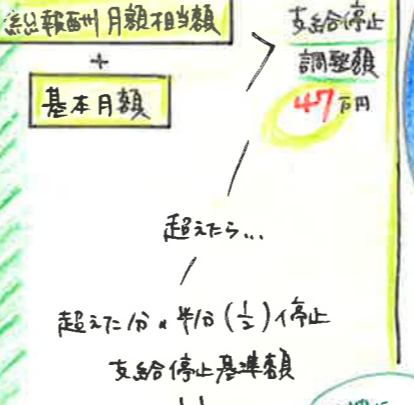 総報酬月額相当額
+
基本月額
>
支給停止
調整額
47万円
超えたら...
超えた分の半分(1/2)停止
支給停止基準額